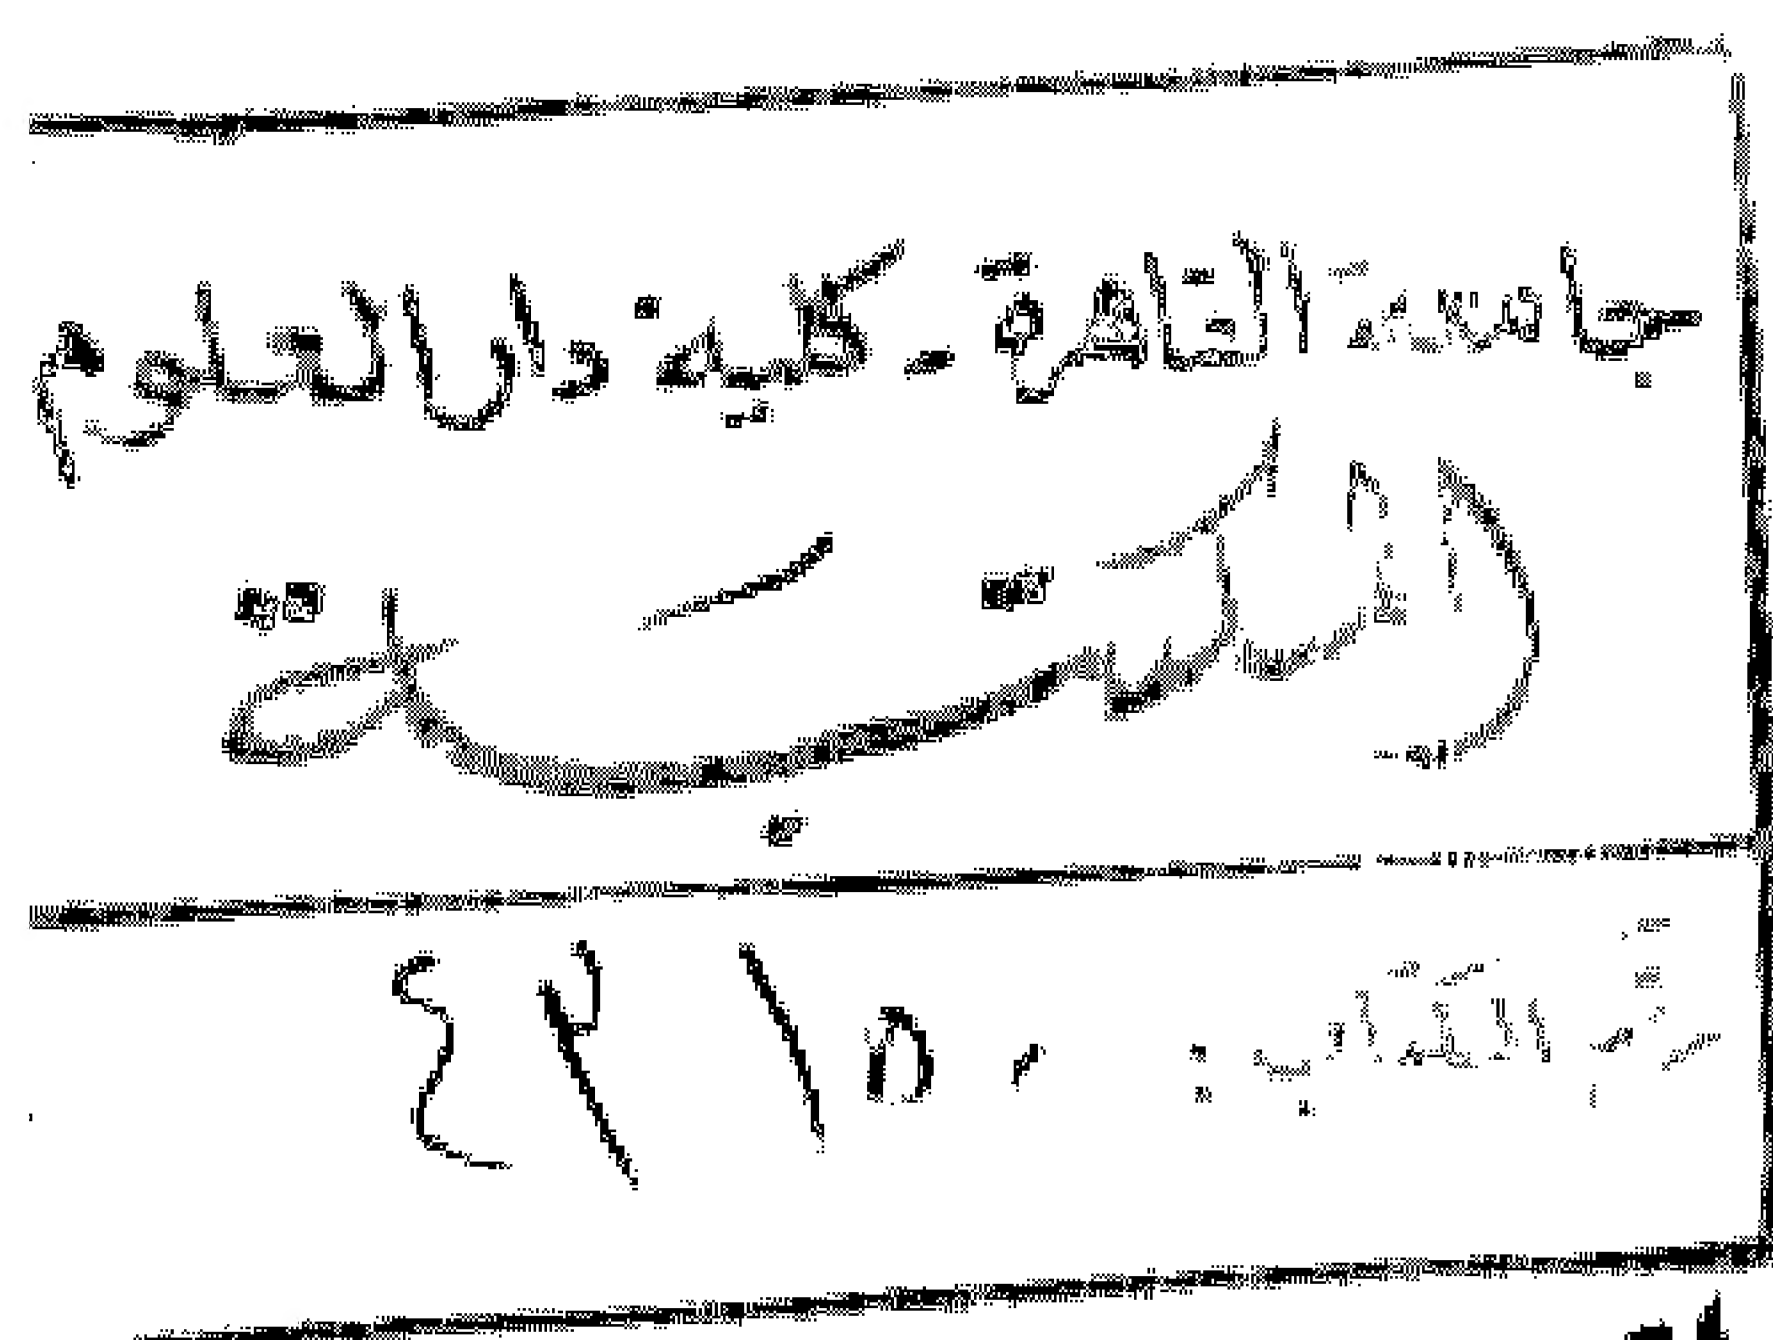 جامعة القاهرة - كلية دار العلوم
المكتبة
رقم الكتاب : ٤٢١٥٠